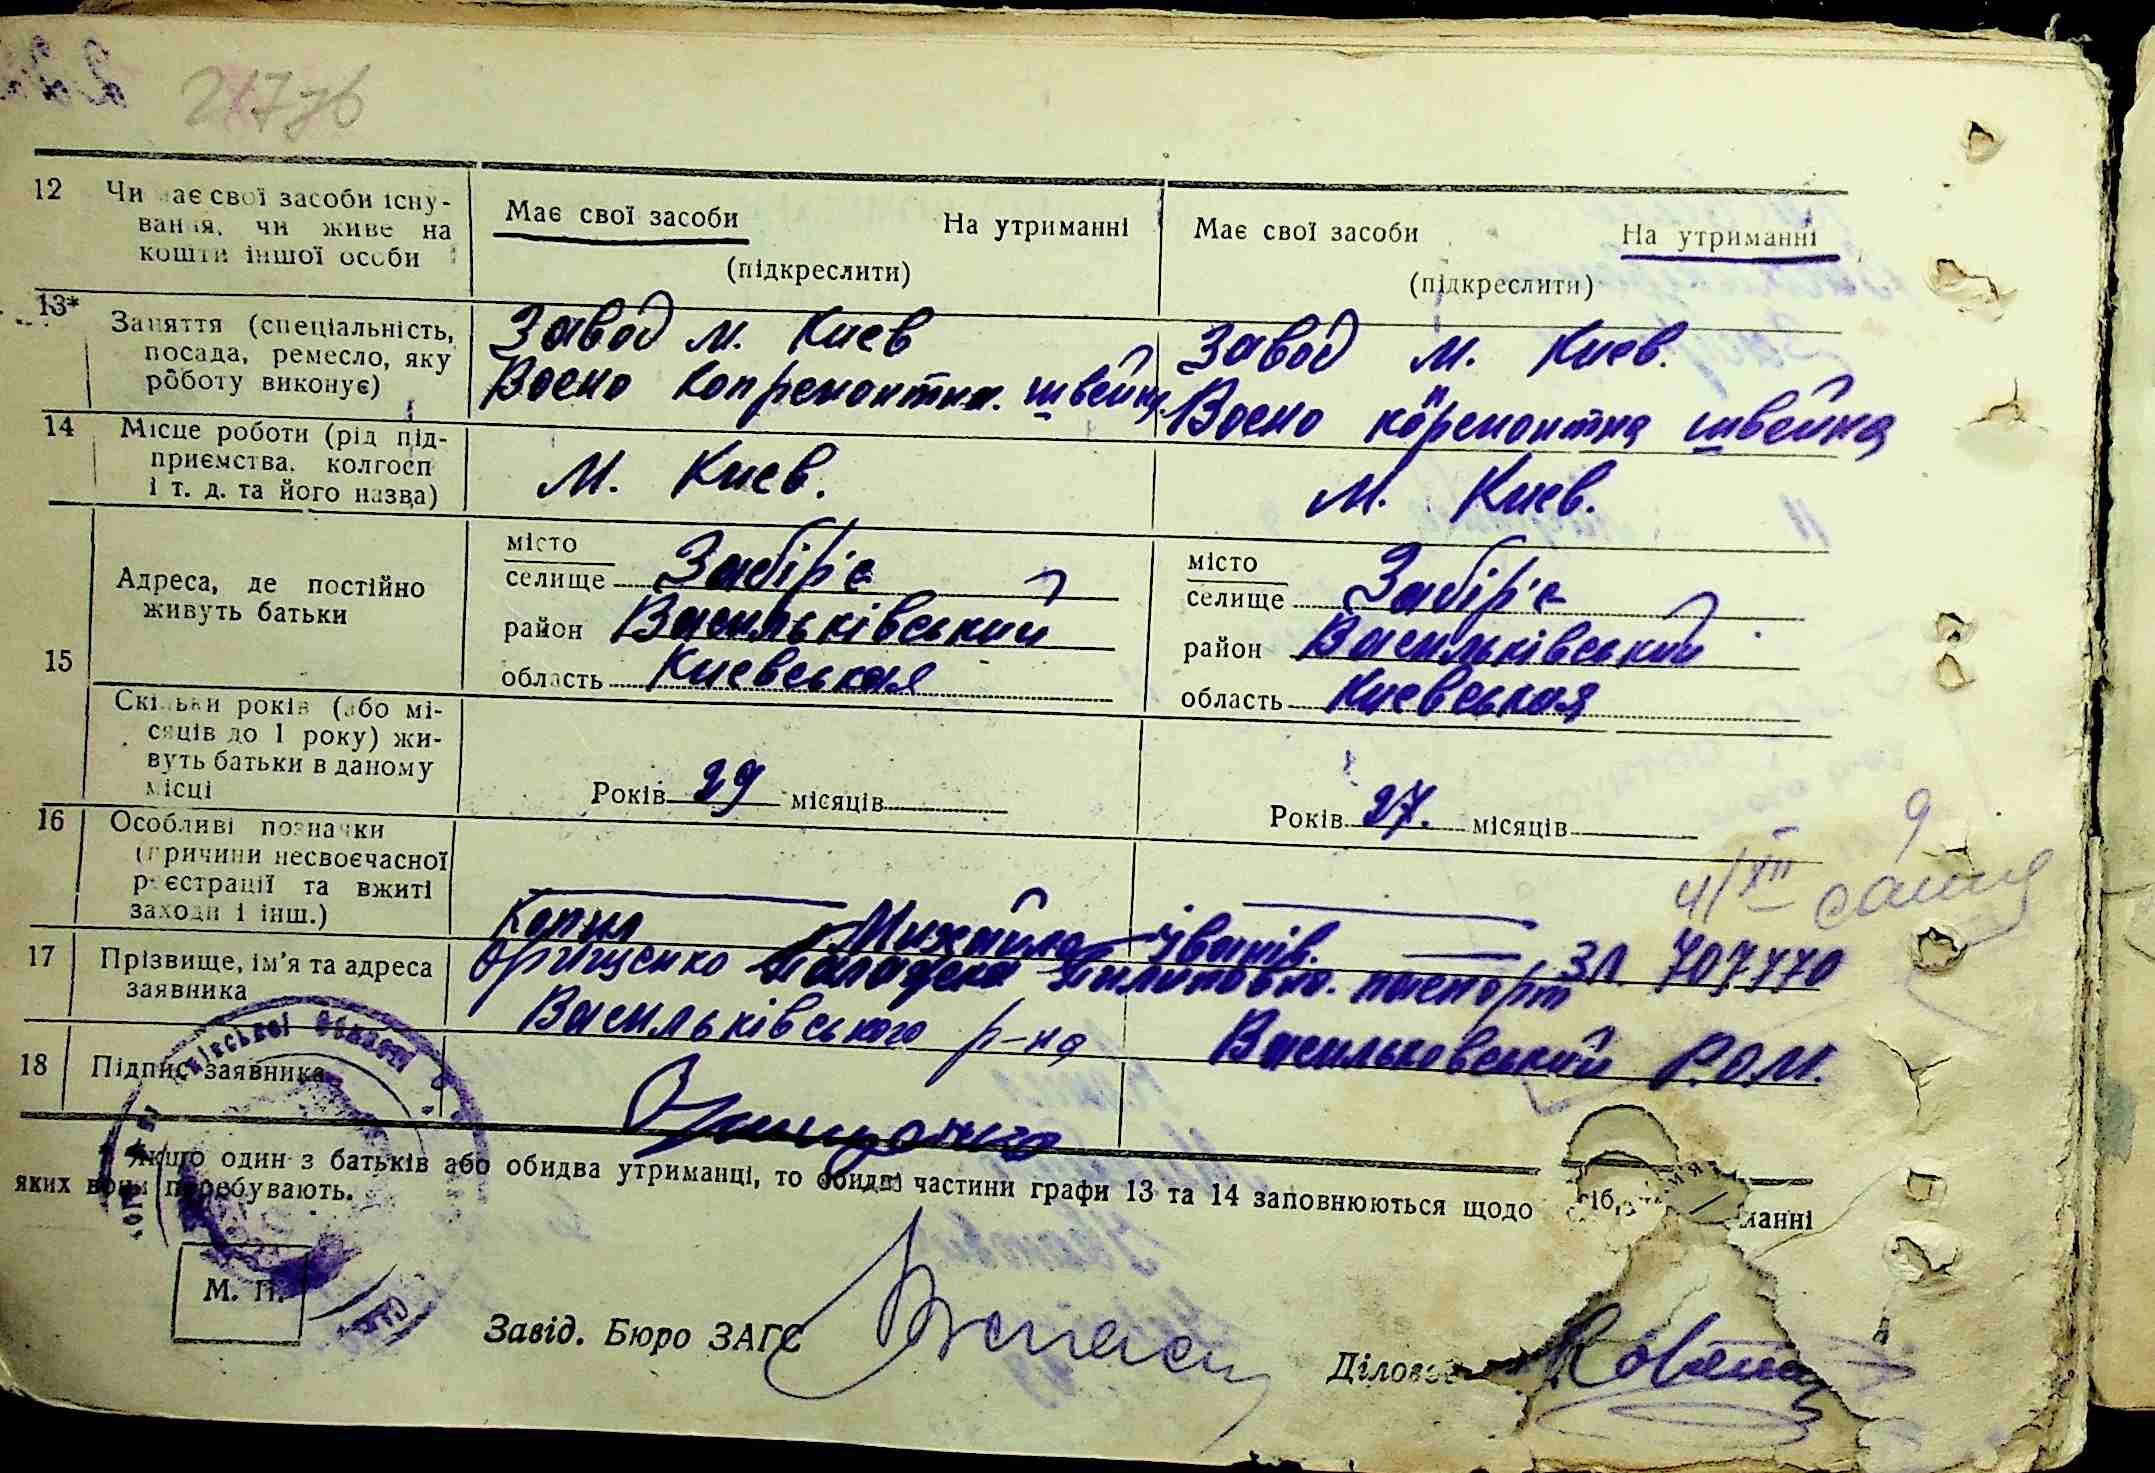 247зв
12 Чи має свої засоби існу-
вання, чи живе на
кошти іншої особи
Має свої засоби На утриманні
(підкреслити)
Має свої засоби На утриманні
(підкреслити)
13* Заняття (спеціальність,
посада, ремесло, яку
роботу виконує)
Завод м. Киев
Воено копремонтна. швейн
Завод м. Киев.
Воено копремонтна швейна
14 Місце роботи (рід під-
приємства, колгосп
і т. д. та його назва)
м. Киев.
м. Киев.
15 Адреса, де постійно
живуть батьки
місто
селище Забір'є
район Васильківський
область Киевськая
місто
селище Забір'є
район Васильківський
область Киевськая
Скільки років (або мі-
сяців до 1 року) жи-
вуть батьки в даному
місці
Років 29 місяців
Років 27. місяців
16 Особливі позначки
(причини несвоєчасної
реєстрації та вжиті
заходи і інш.)
4/XII
17 Прізвище, ім'я та адреса
заявника
Копил Михайло Іванів.
Онищенко паспорт ЗЛ 707770
Васильківського р-на Васильковський Р.О.М.
18 Підпис заявника
Якщо один з батьків або обидва утриманці, то обидві частини графи 13 та 14 заповнюються щодо
яких вони перебувають.
манні
М. П.
Завід. Бюро ЗАГС
Діловод